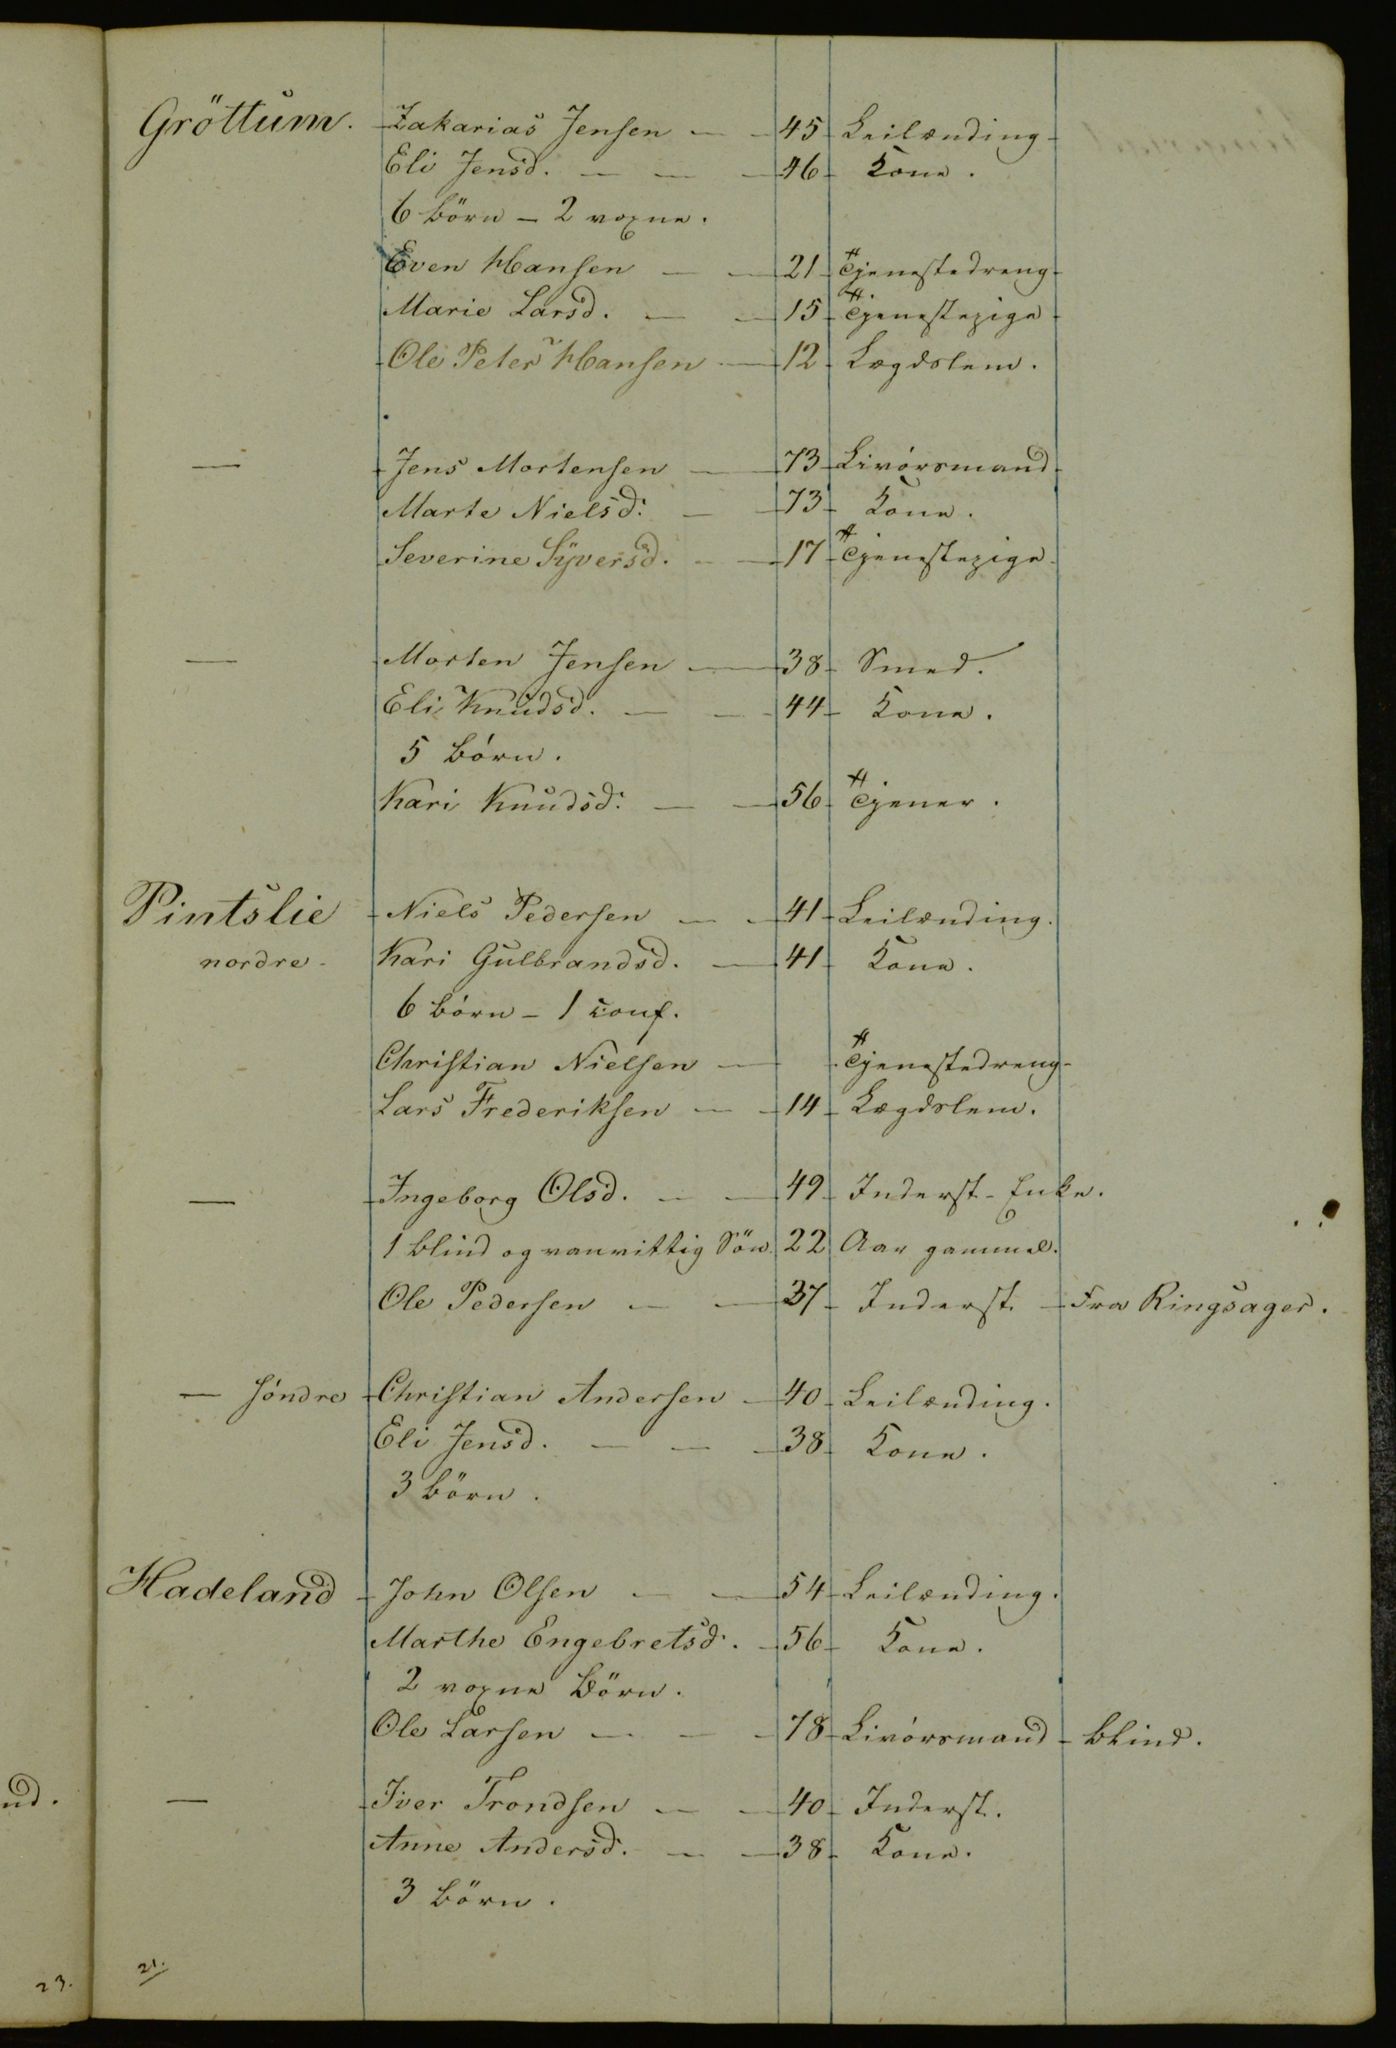 Gröttum. Zakarias Jensen — — 45 Leilænding
Eli Jensd. — — — 46 Kone.
6 Börn — 2 voxne.
Even Hansen — — 21 Tjenestedreng
Marie Larsd. — — 15 Tjenestepige
Ole Peter Hansen — 12 Lægdslem.
— Jens Mortensen — — 73 Livörsmand
Marte Nielsd. — — 73 Kone.
Severine Syversd. — — 17 Tjenestepige
— Morten Jensen — 38 Smed.
Eli Knudsd. — — 44 Kone.
5 Börn.
Kari Knudsd. — — 56 Tjener.
Pintslie Niels Pedersen — — 41 Leilænding.
nordre Kari Gulbrandsd. — 41 Kone.
6 Börn — 1 conf.
Christian Nielsen — Tjenestedreng
Lars Frederiksen — — 14 Lægdslem.
— Ingeborg Olsd. — — 49 Inderst-Enke.
1 blind og vanvittig Sön 22 Aar gammel.
Ole Pedersen — — 37 Inderst — Fra Ringsager.
— söndre Christian Andersen — 40 Leilænding.
Eli Jensd. — — — 38 Kone.
3 Börn.
Hadeland John Olsen — — 54 Leilænding.
Marthe Engebretsd. — 56 Kone.
2 voxne Börn.
Ole Larsen — — — 78 Livörsmand — blind.
nd. — Iver Trondsen — — 40 Inderst.
Anne Andersd. — — 38 Kone.
3 Börn.
23. 21.